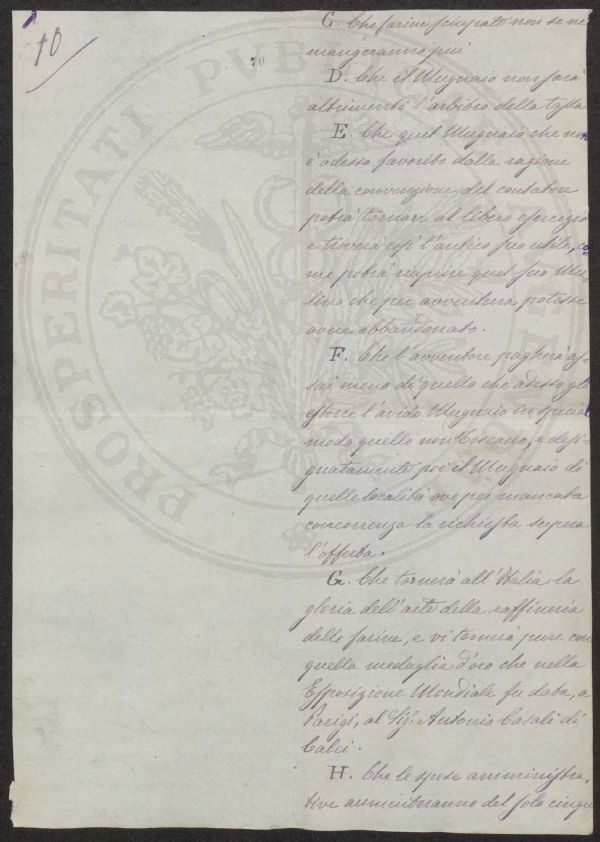 10
70
C. Che farine sciupate non se ne
mangeranno più
D. Che il Mugnaio non sarà
altrimenti l'arbitro della tassa
E. Che quel Mugnaio che non
è adesso favorito dalla ragione
della convenzione del contatore
potrà tornare al libero esercizio
e troverà così l'antico suo utile, co
me potrà riaprire quel suo Mu-
lino che per avventura potesse
avere abbandonato.
F. Che l'avventore pagherà as-
sai meno di quello che adesso gli
estorce l'avido Mugnaio in special
modo quello non Toscano, e desi-
gnatamente poi il Mugnaio di
quelle località ove per mancata
concorrenza la richiesta supera
l'offerta.
G. Che tornerà all'Italia la
gloria dell'arte della raffineria
delle farine, e vi tornerà pure con
quella medaglia d'oro che nella
Esposizione Mondiale fu data, a
Parigi, al Sig. Antonio Casali di
Calci.
H. Che le spese amministra-
tive aumenteranno del solo cinque
PROSPERITATI PUBLICAE